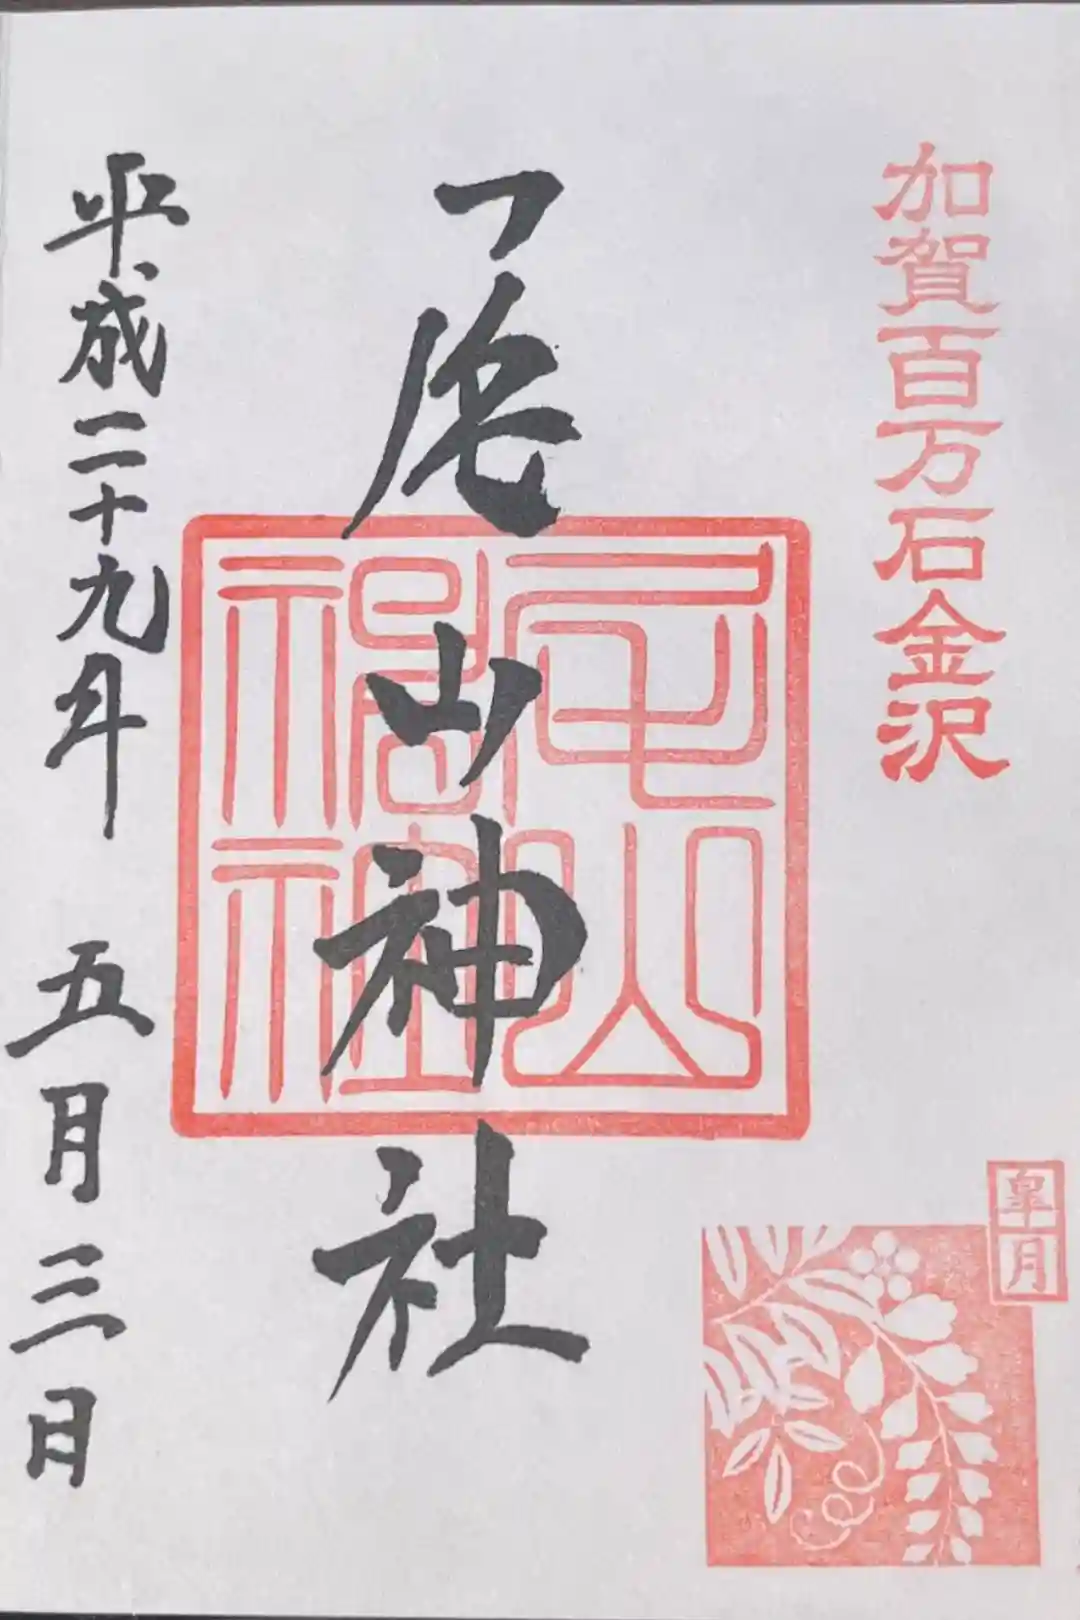 加賀百万石金沢
皐月
尾山神社
尾山神社
平成二十九年 五月三日